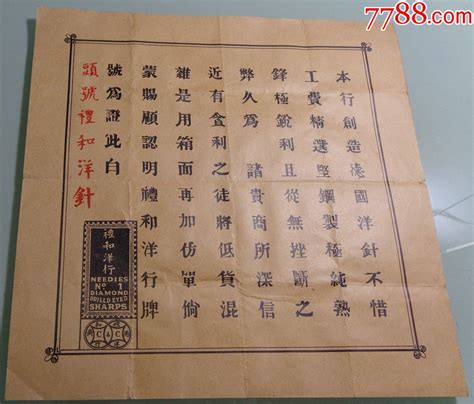 7788.com
本行創造德國洋針不惜
工費精選堅鋼製極純熟
鋒極銳利且從無挫斷之
弊久爲諸貴商所深信
近有盒利之徒將低貨混
雜是用箱面再加仿單倘
蒙賜顧認明禮和洋行牌
號爲證此白
頭號禮和洋針
禮和洋行
NEEDLES
No 1
DIAMOND
DRILLED EYED
SHARPS
C&C